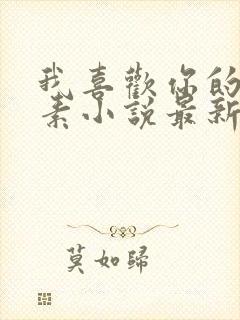 我喜歡你的
素小說最新
莫如歸